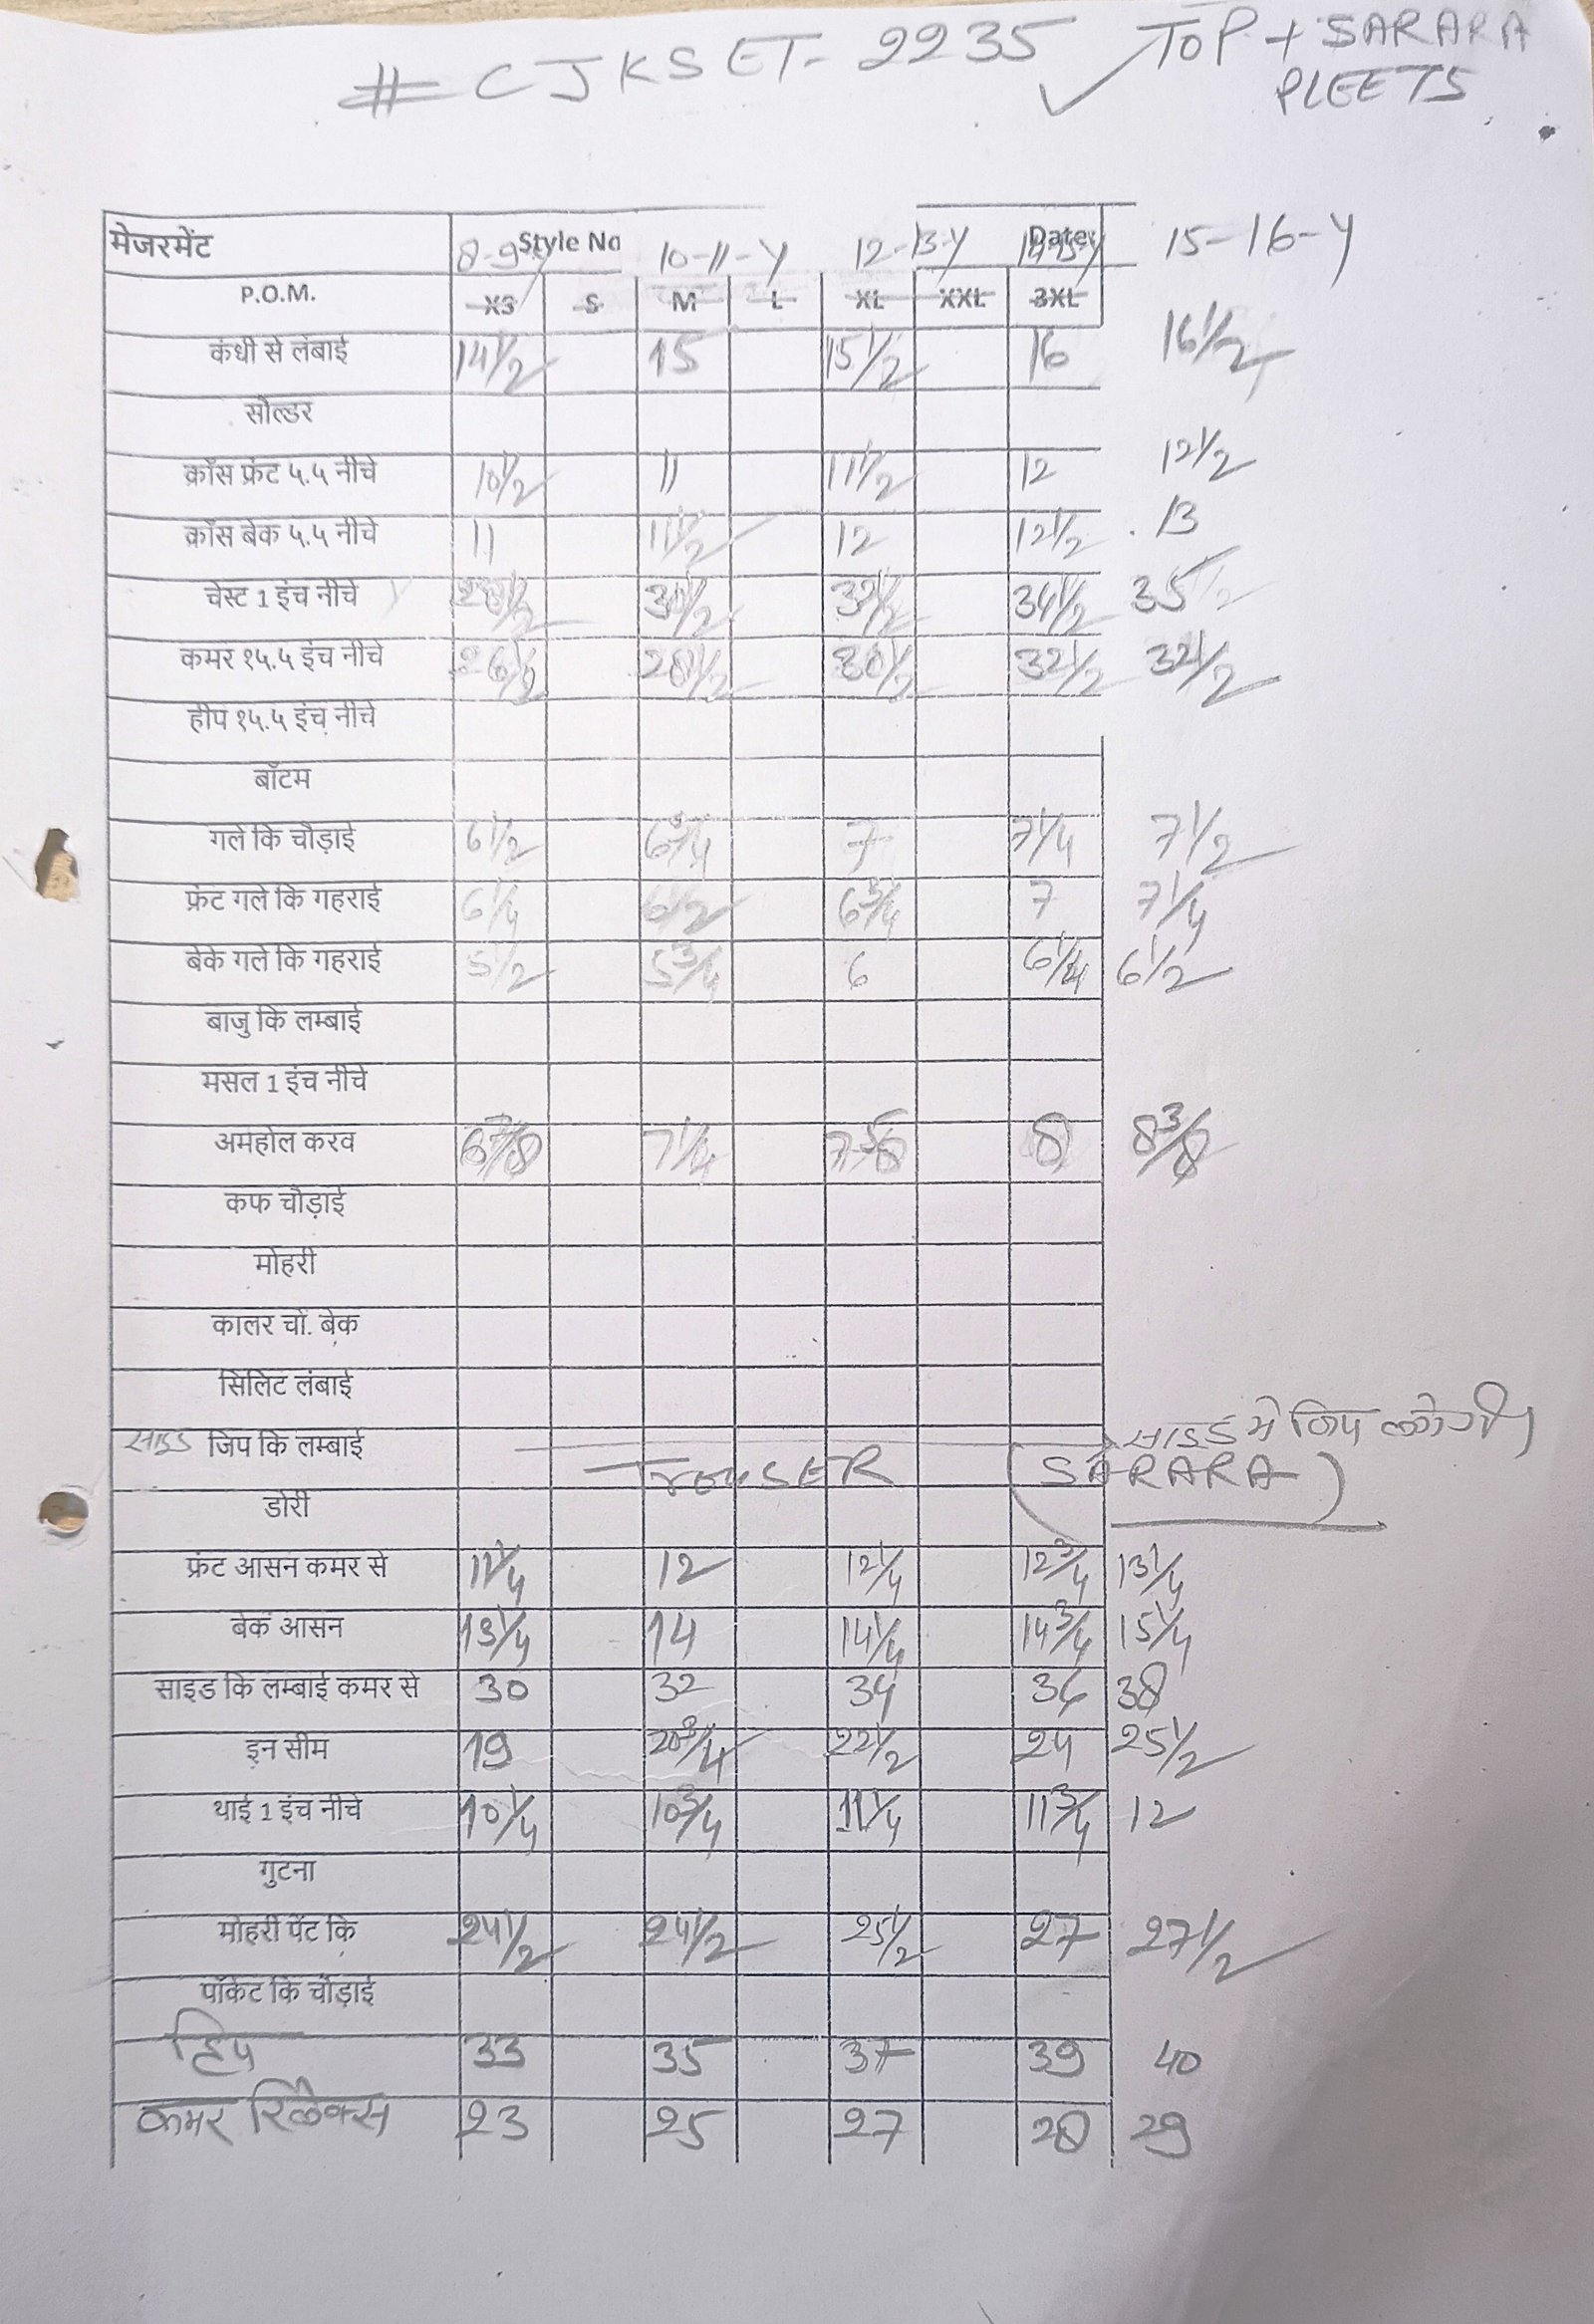 # CJKSET-2235 ✓ TOP + SARARA
PLEETS
मेजरमेंट Style No Date:
8-9-Y 10-11-Y 12-13-Y 14-15-Y 15-16-Y
P.O.M. XS S M L XL XXL 3XL
कंधी से लंबाई 14 1/2 15 15 1/2 16 16 1/2
सोल्डर
क्रॉस फ्रंट ५.५ नीचे 10 1/2 11 11 1/2 12 12 1/2
क्रॉस बेक ५.५ नीचे 11 11 1/2 12 12 1/2 13
चेस्ट 1 इंच नीचे 28 1/2 30 1/2 32 1/2 34 1/2 35
कमर १५.५ इंच नीचे 26 1/2 28 1/2 30 1/2 32 1/2 32 1/2
हीप १५.५ इंच नीचे
बॉटम
गले कि चौड़ाई 6 1/2 6 3/4 7 7 1/4 7 1/2
फ्रंट गले कि गहराई 6 1/4 6 1/2 6 3/4 7 7 1/4
बेके गले कि गहराई 5 1/2 5 3/4 6 6 1/4 6 1/2
बाजु कि लम्बाई
मसल 1 इंच नीचे
अमहोल करव 6 7/8 7 1/4 7 5/8 8 8 3/8
कफ चौड़ाई
मोहरी
कालर चो. बेक
सिलिट लंबाई
साइड जिप कि लम्बाई साइड मे जिप लगेगी
TrouSER (SARARA)
डोरी
फ्रंट आसन कमर से 11 1/4 12 12 1/4 12 3/4 13 1/4
बेक आसन 13 1/4 14 14 1/4 14 3/4 15 1/4
साइड कि लम्बाई कमर से 30 32 34 36 38
इन सीम 19 20 3/4 22 1/2 24 25 1/2
थाई 1 इंच नीचे 10 1/4 10 3/4 11 1/4 11 3/4 12
गुटना
मोहरी पेंट कि 24 1/2 24 1/2 25 1/2 27 27 1/2
पॉकेट कि चौड़ाई
हिप 33 35 37 39 40
कमर रिलेक्स 23 25 27 28 29